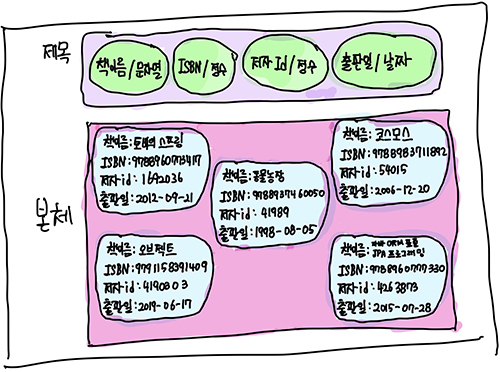 제목
책이름/문자열
ISBN/정수
저자 Id/정수
출판일/날짜
본체
책이름: 토비의 스프링
ISBN: 9788960773417
저자id: 1692036
출판일: 2012-09-21
책이름: 동물농장
ISBN: 9788937460050
저자id: 41989
출판일: 1998-08-05
책이름: 코스모스
ISBN: 9788983711892
저자id: 54015
출판일: 2006-12-20
책이름: 오브젝트
ISBN: 9791158391409
저자id: 4190803
출판일: 2019-06-17
책이름: 자바 ORM 표준
JPA 프로그래밍
ISBN: 9788960777330
저자id: 4263873
출판일: 2015-07-28